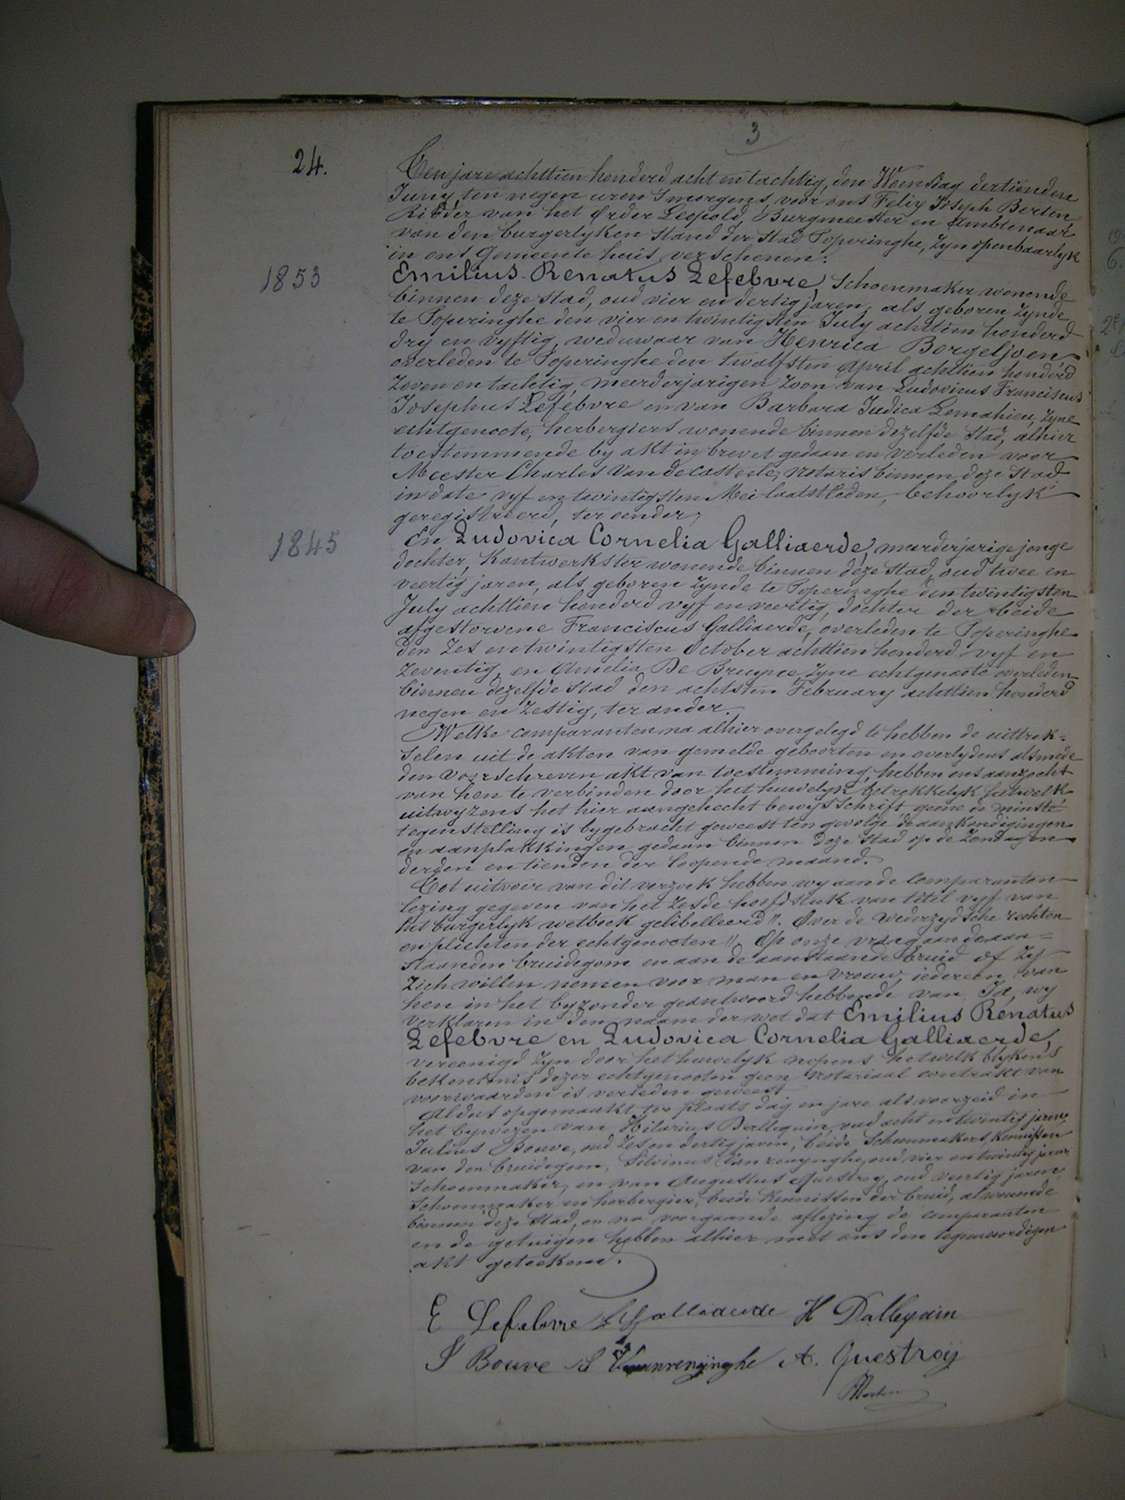 3
24.
Ten jare achttien honderd acht en tachtig, den Woensdag dertienden
Juny, ten negen uren 's morgens, voor ons Felix Joseph Berten
Ridder van het Order Leopold, Burgmeester en Ambtenaar
van den burgerlyken stand der Stad Poperinghe, zyn openbaarlyk
in ons Gemeente huis, verschenen:
1853
Emilius Renatus Lefebvre, Schoenmaker wonende
binnen deze stad, oud vier en dertig jaren, als geboren zynde
te Poperinghe den vier en twintigsten July achttien honderd
dry en vyftig, weduwaar van Henrica Bergeljoen
overleden te Poperinghe den twalfsten April achttien honderd
zeven en tachtig, meerderjarigen zoon van Ludovicus Franciscus
Josephus Lefebvre en van Barbara Judica Lemahieu, zyne
echtgenoote, herbergiers wonende binnen dezelfde stad, alhier
toestemmende by akt in brevet gedaan en verleden voor
Meester Charles Van de casteele, notaris binnen deze Stad
in date vyf en twintigsten Mei laatstleden, behoorlyk
geregistreerd, ter eender;
1845
En Ludovica Cornelia Galliaerde, meerderjarige jonge
dochter, Kantwerkster wonende binnen deze stad, oud twee en
veertig jaren, als geboren zynde te Poperinghe den twintigsten
July achttien honderd vyf en veertig, dochter der beide
afgestorvene Franciscus Galliaerde, overleden te Poperinghe
den zes en twintigsten October achttien honderd vyf en
zeventig, en Amelia De Bruyne, zyne echtgenoote overleden
binnen dezelfde stad den achtsten February achttien honderd
negen en zestig, ter ander.
Welke comparanten na alhier overgelegd te hebben de uittrek=
selen uit de akten van gemelde geboorten en overlydens alsmede
den voorschreven akt van toestemming, hebben ons aanzocht
van hen te verbinden door het huwelyk betrekkelyk hetwelk
uitwyzens het hier aangehecht bewysschrift geene de minste
tegenstelling is bygebracht geweest ten gevolge de aankondigingen
en aanplakkingen gedaan binnen deze Stad op de Zondagen
derden en tienden der loopende maand.
Tot uitvoer van dit verzoek hebben wy aan de comparanten
lezing gegeven van het zesde hoofdstuk van titel vyf van
het burgerlyk wetboek gelibelleerd ". Over de wederzydsche rechten
en plichten der echtgenooten ". Op onze vraag aan de aan=
staanden bruidegom en aan de aanstaande bruid of zy
zich willen nemen voor man en vrouw, iedereen van
hen in het byzonder geantwoord hebbende van Ja, wy
verklaren in den naam der wet dat Emilius Renatus
Lefebvre en Ludovica Cornelia Galliaerde,
vereenigd zyn door het huwelyk nopens hetwelk blykens
bekentenis dezer echtgenooten geen notariaal contrakt van
voorwaarden is verleden geweest.
Aldus opgemaakt ter plaats dag en jare als voorzeid in
het bywezen van Hilarius Dallequin, oud acht en twintig jaren,
Julius Bouve, oud zes en dertig jaren, beide Schoenmakers, kennissen
van den bruidegom, Silvinus Van renynghe, oud vier en twintig jaren
schoenmaker, en van Augustus Questroy, oud veertig jaren,
Schoenmaker en herbergier, beide kennissen der bruid, al wonende
binnen deze stad, en na voorgaande aflezing de comparanten
en de getuigen hebben alhier met ons den tegenwoordigen
akt geteekend.
E Lefebvre L Galliaerde H Dallequin
J Bouve S Vanrenÿnghe A. Questroÿ
Berten